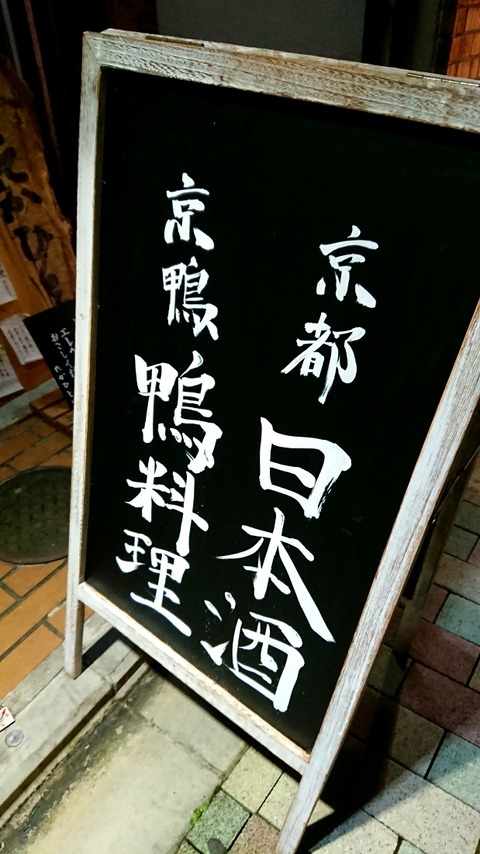 京都 日本酒
京鴨 鴨料理